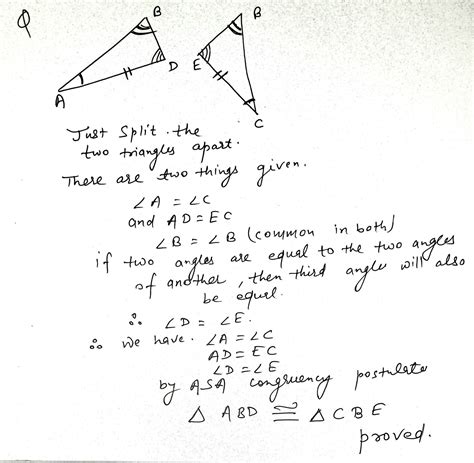 Q
B
B
D
E
A
C
Just Split the
two triangles apart.
There are two things given.
∠A = ∠C
and AD = EC
∠B = ∠B (common in both)
if two angles are equal to the two angles
of another, then third angle will also
be equal.
∴ ∠D = ∠E.
∴ we have. ∠A = ∠C
AD = EC
∠D = ∠E
by ASA congruency postulate
△ ABD ≅ △ CBE
proved.